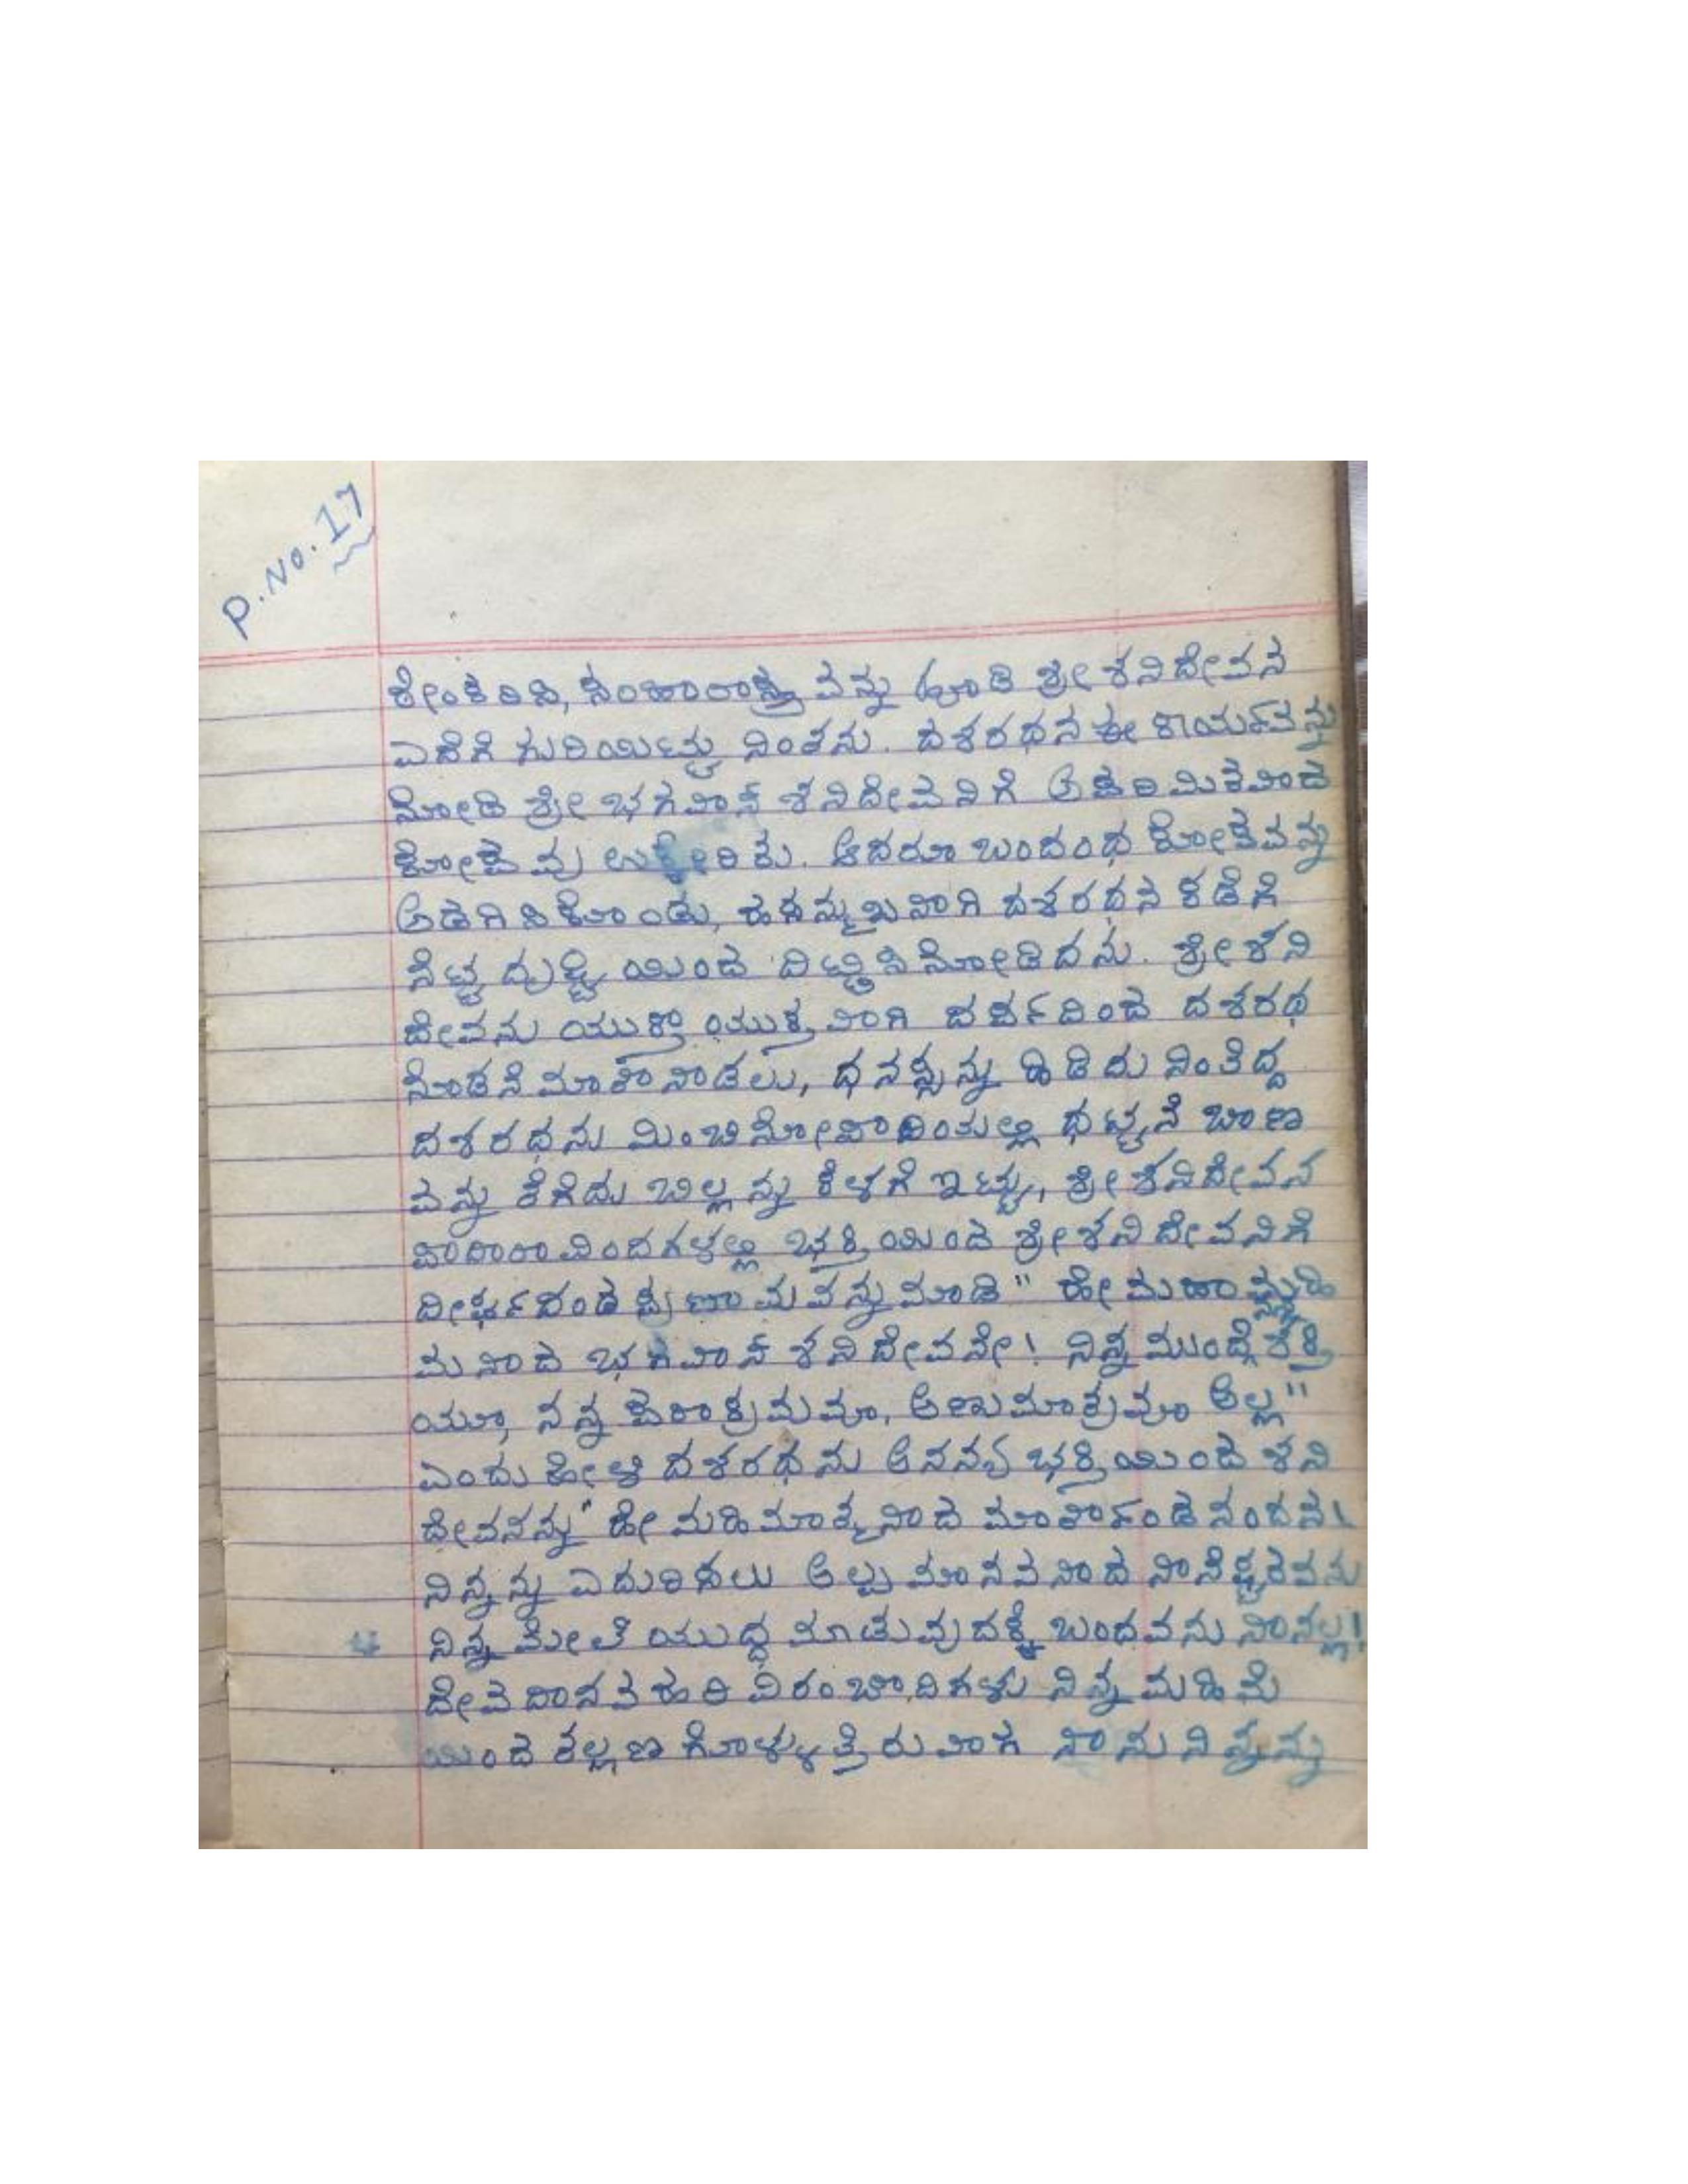 P.No. 17
ಠೇಂಕರಿಸಿ, ಸಂಹಾರಾಸ್ತ್ರವನ್ನು ಹೂಡಿ ಶ್ರೀ ಶನಿದೇವನ
ಎದೆಗೆ ಗುರಿಯಿಟ್ಟು ನಿಂತನು. ದಶರಥನ ಈ ಕಾರ್ಯವನ್ನು
ನೋಡಿ ಶ್ರೀ ಭಗವಾನ್ ಶನಿದೇವನಿಗೆ ಅಪರಿಮಿತವಾದ
ಕೋಪವು ಉಕ್ಕೇರಿತು. ಆದರೂ ಬಂದಂಥ ಕೋಪವನ್ನು
ಅಡಗಿಸಿಕೊಂಡು, ಹಸನ್ಮುಖನಾಗಿ ದಶರಥನ ಕಡೆಗೆ
ನೆಟ್ಟ ದೃಷ್ಟಿಯಿಂದ ದಿಟ್ಟಿಸಿ ನೋಡಿದನು. ಶ್ರೀ ಶನಿ
ದೇವನು ಯುಕ್ತಾಯುಕ್ತವಾಗಿ ದರ್ಪದಿಂದ ದಶರಥ
ನೊಡನೆ ಮಾತಾನಾಡಲು, ಧನಸ್ಸನ್ನು ಹಿಡಿದು ನಿಂತಿದ್ದ
ದಶರಥನು ಮಿಂಚಿನೋಪಾದಿಯಲ್ಲಿ ಥಟ್ಟನೆ ಬಾಣ
ವನ್ನು ತೆಗೆದು ಬಿಲ್ಲನ್ನು ಕೆಳಗೆ ಇಟ್ಟು, ಶ್ರೀ ಶನಿದೇವನ
ಪಾದಾರಾವಿಂದಗಳಲ್ಲಿ ಭಕ್ತಿಯಿಂದ ಶ್ರೀ ಶನಿದೇವನಿಗೆ
ದೀರ್ಘದಂಡ ಪ್ರಣಾಮವನ್ನು ಮಾಡಿ " ಹೇ ಮಹಾ
ಮನಾದ ಭಗವಾನ್ ಶನಿದೇವನೇ! ನಿನ್ನ ಮುಂದೆ ಶಕ್ತಿ
ಯೂ, ನನ್ನ ಪರಾಕ್ರಮವೂ, ಅಣುಮಾತ್ರವೂ ಅಲ್ಲ"
ಎಂದು ಹೇಳಿ ದಶರಥನು ಅನನ್ಯ ಭಕ್ತಿಯಿಂದ ಶನಿ
ದೇವನನ್ನು " ಹೇ ಮಹಿಮಾತ್ಮನಾದ ಮಾರ್ತಾಂಡ ನಂದನ!
ನಿನ್ನನ್ನು ಎದುರಿಸಲು ಅಲ್ಪ ಮಾನವನಾದ ನಾನೆಷ್ಟರವನು
ನಿನ್ನ ಮೇಲೆ ಯುದ್ಧ ಮಾಡುವುದಕ್ಕೆ ಬಂದವನು ನಾನಲ್ಲ!
ದೇವ ದಾನವ ಹರಿ ವಿರಂಚಾದಿಗಳು ನಿನ್ನ ಮಹಿಮೆ
ಯಿಂದ ತಲ್ಲಣಗೊಳ್ಳುತ್ತಿರುವಾಗ ನಾನು ನಿನ್ನನ್ನು